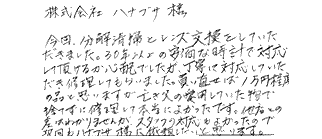 株式会社 ハナブサ 様
今回、分解清掃と レンズ交換をしていた
だきました。30年以上の 古い時計で対応
して頂けるか心配でしたが、丁寧に対応していた
だき修理してもらいました。買い直せば 1万円程度
の品と思いますが 亡き父の愛用していた物で
捨てずに修理して本当によかったです。他社との
差はわかりませんが、スタッフの対応もよかったので
次回もハナブサ様に依頼したいと思います。